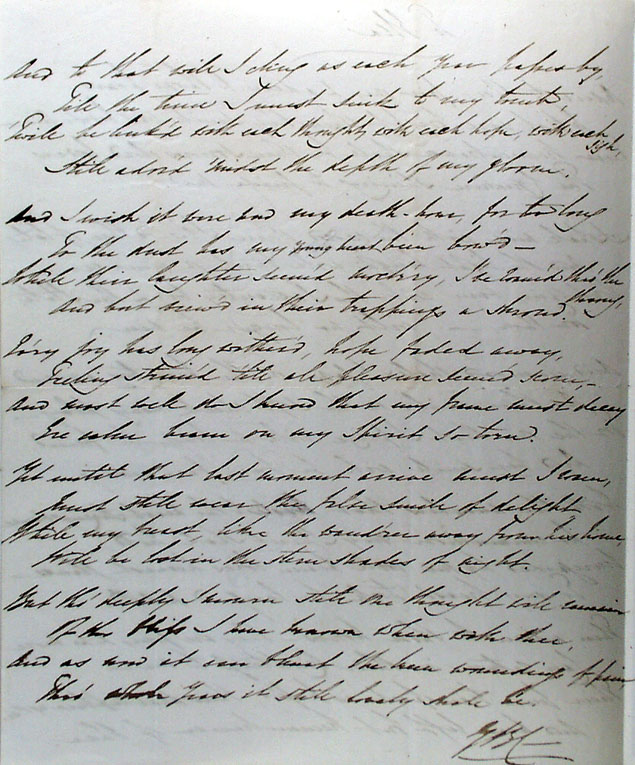 And to that will I cling as each year passes by,
Till the time I must sink to my tomb,
'Twill be link'd with each thought, with each hope, with each sigh,
Still ador'd 'midst the depth of my gloom.
And I wish it were and my death-hour, for too long
To the dust has my young heart been bow'd —
While their laughter seem'd mockery, I've roam'd thro' the throng,
And but view'd in their trappings a shroud.
Ev'ry joy has long wither'd, hope faded away,
Feeling strain'd till all pleasure seemed scorn, —
And most well do I know that my frame must decay
Ere calm beam on my Spirit so torn.
Yet until that last moment arrive must I roam,
Must still wear the false smile of delight
While my heart, like the wand'rer away from his home,
Will be lost in the stern shades of night.
But tho' deeply I mourn still one thought will remain
Of the bliss I have known when with thee,
And as now it can blunt the keen woundings of pain,
Thro' whole years it still lovely shall be.